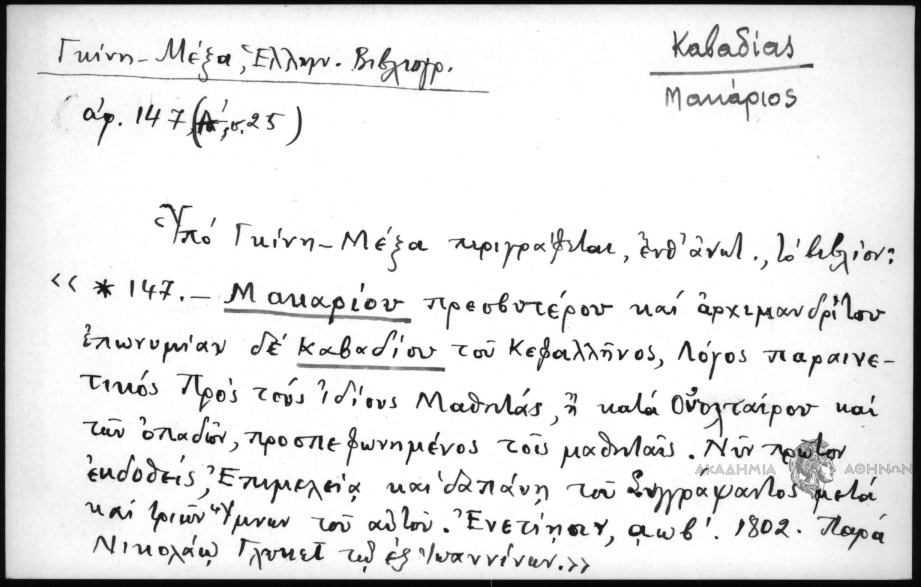 Γκίνη - Μέξα, Ἑλλην. Βιβλιογρ.
ἀρ. 147, (Α΄, σ. 25)
Καβαδίας
Μακάριος
Ὑπό Γκίνη - Μέξα περιγράφεται, ἐνθ' ἀνωτ., τό βιβλίον:
« * 147. — Μακαρίου πρεσβυτέρου καί ἀρχιμανδρίτου
ἐπωνυμίαν δέ Καβαδίου τοῦ Κεφαλλῆνος, Λόγος παραινε-
τικός Πρός τούς ἰδίους Μαθητάς, ἤ κατά Οὐολταίρου καί
τῶν ὀπαδῶν, προσπεφωνημένος τοῖς μαθηταῖς. Νῦν πρῶτον
ἐκδοθείς, Ἐπιμελείᾳ καί δαπάνῃ τοῦ Συγγράψαντος μετά
καί τριῶν Ὕμνων τοῦ αὐτοῦ. Ἐνετίῃσιν, αωβ΄. 1802. Παρά
Νικολάῳ Γλυκεῖ τῷ ἐξ Ἰωαννίνων.»
ΑΚΑΔΗΜΙΑ ΑΘΗΝΩΝ